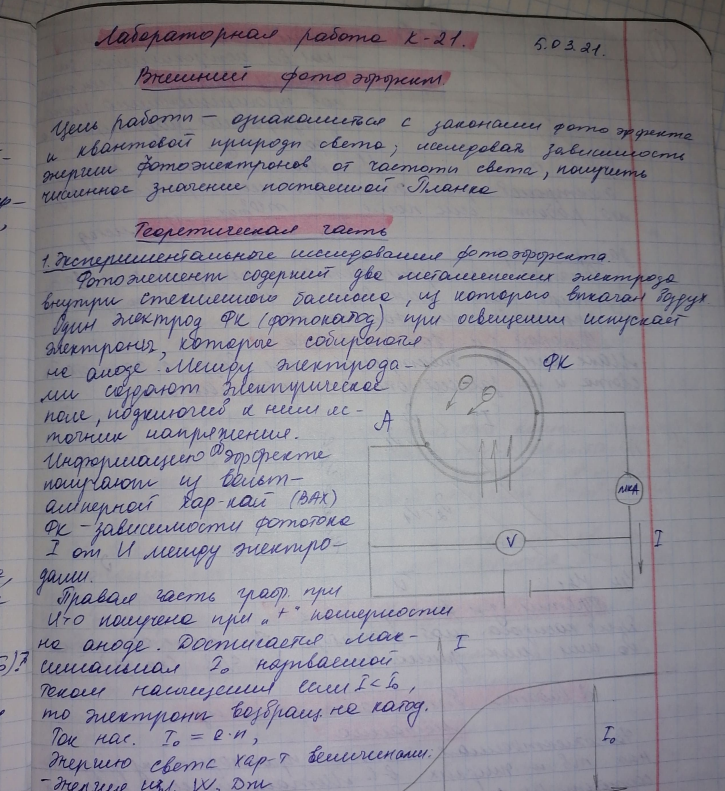 Лабораторная работа К-21.
5.03.21.
Внешний фотоэффект.
Цель работы – ознакомиться с законами фотоэффекта
и квантовой природы света, исследовать зависимость
энергии фотоэлектронов от частоты света, получить
численное значение постоянной Планка
Теоретическая часть
1. Экспериментальные исследования фотоэффекта.
Фотоэлемент содержит два металлических электрода
внутри стеклянного баллона, из которого выкачан воздух
Один электрод ФК (фотокатод) при освещении испускает
электроны, которые собираются
на аноде. Между электрода-
ми создают электрическое
поле, подключив к ним ис-
точник напряжения.
Информацию о Фэффекте
получают из вольт-
амперной хар-кай (ВАХ)
ФК – зависимости фототока
I от U между электро-
дами.
Правая часть граф. при
U>0 получена при "+" полярности
на аноде. Достигается мак-
симальная I₀ называемой
током насыщения если I < I₀,
то электроны возвращ. на катод.
Ток нас. I₀ = e·n,
Энергию света хар-т величинами:
- Энергия изл. W, Дж
ФК
А
мкА
V
I
I
I₀